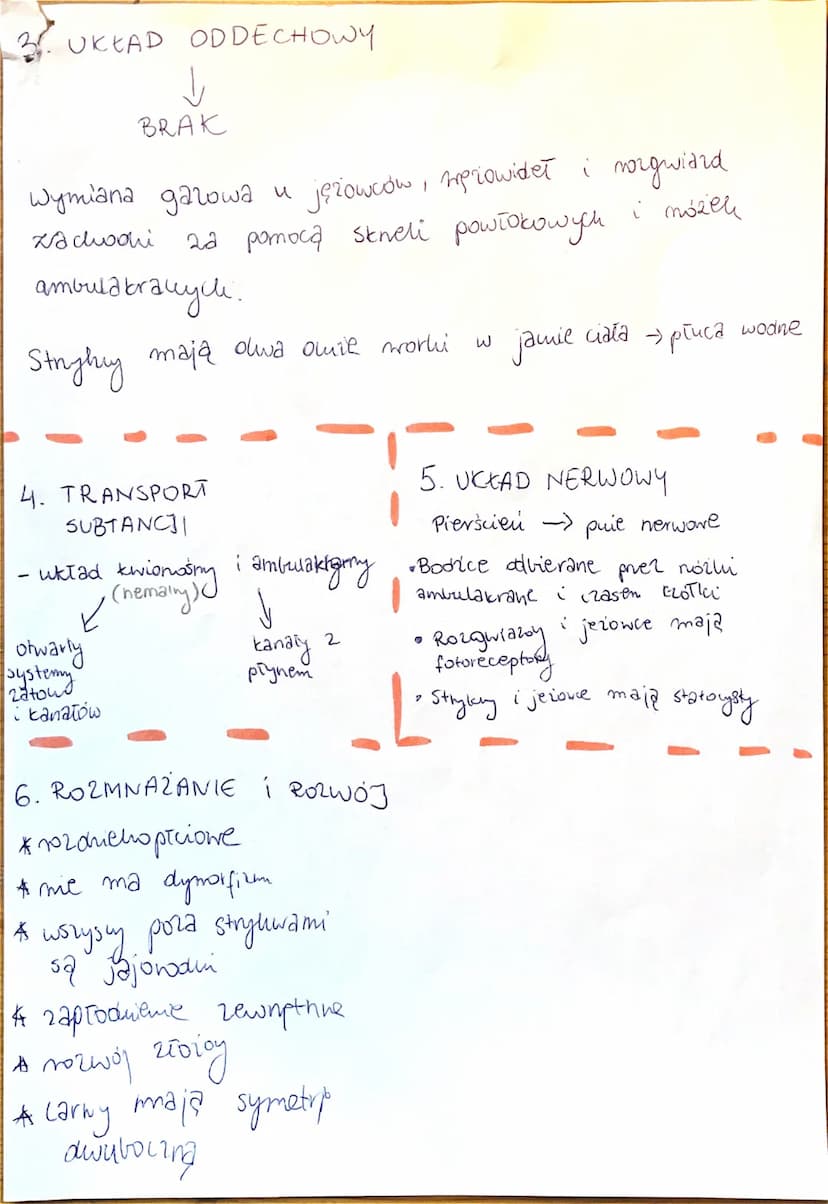 3. UKŁAD ODDECHOWY
↓
BRAK
Wymiana gazowa u jężowców, wężowideł i rozgwiazd
zachodzi za pomocą skrzeli powłokowych i nóżek
ambulakralnych.
Strzykwy mają dwa duże worki w jamie ciała → płuca wodne
4. TRANSPORT
SUBTANCJI
- układ krwionośny i ambulakralny
(nemalny)
otwarty
systemy
zatok
i kanałów
kanały z
płynem
5. UKŁAD NERWOWY
Pierścień → pnie nerwowe
• Bodźce odbierane przez nóżki
ambulakrane i czasem czółki
• Rozgwiazdy i jeżowce mają
fotoreceptory
• Strzykwy i jeżowce mają statocysty
6. ROZMNAŻANIE i ROZWÓJ
* rozdzielnopłciowe
* nie ma dymorfizm
* wszyscy poza strzykwami
są jajorodni
* zapłodnienie zewnętrzne
* rozwój złożony
* Larwy mają symetrię
dwuboczną